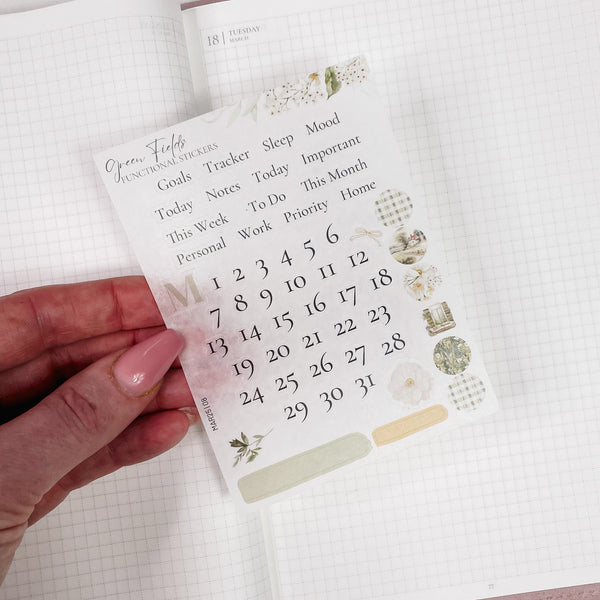 18 TUESDAY
MARCH
Green Fields
FUNCTIONAL STICKERS
Goals Tracker Sleep Mood
Today Notes Today Important
This Week To Do This Month
Personal Work Priority Home
M 1 2 3 4 5 6
7 8 9 10 11 12
13 14 15 16 17 18
19 20 21 22 23
24 25 26 27 28
29 30 31
MAR25|08